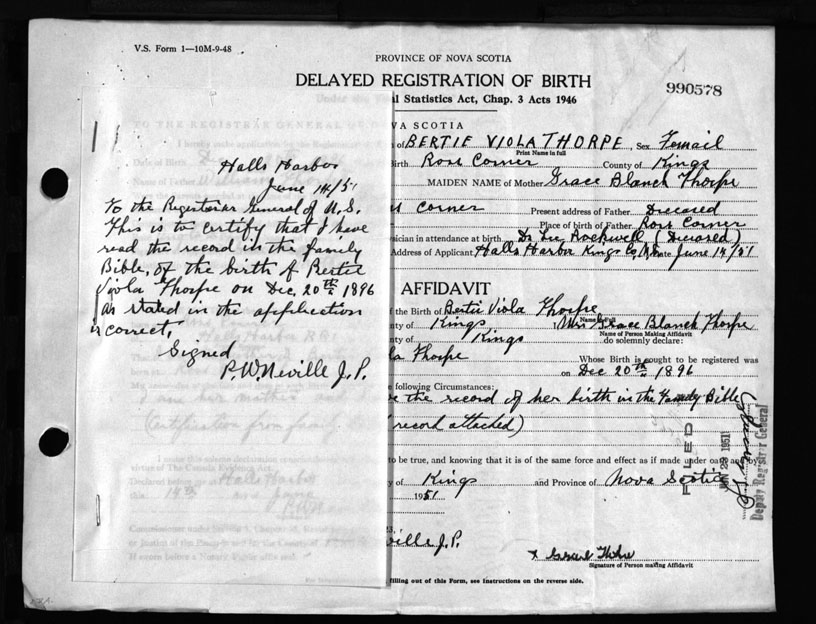 V.S. Form 1—10M-9-48
PROVINCE OF NOVA SCOTIA
DELAYED REGISTRATION OF BIRTH
990578
l Statistics Act, Chap. 3 Acts 1946
Halls Harbor
June 14/51
To the Registerar General of N.S.
This is to certify that I have
read the record in the family
Bible, of the birth of Bertie
Viola Thorpe on Dec, 20th 1896
as stated in the application
is correct,
Signed
P.W. Neville J.P.
VA SCOTIA
of BERTIE VIOLA THORPE, Sex Femail
Print Name in full
Birth Ross Corner County of Kings
MAIDEN NAME of Mother Grace Blanch Thorpe
Corner Present address of Father Decesed
Place of birth of Father Ross Corner
sician in attendance at birth Dr Rockwell (Decesed)
Address of Applicant Halls Harbor Kings Co, N.S. Date June 14/51
AFFIDAVIT
the Birth of Bertie Viola Thorpe
Name in Full
nty of Kings Mrs Grace Blanch Thorpe
Name of Person Making Affidavit
nty of Kings do solemnly declare:
la Thorpe Whose Birth is sought to be registered was
on Dec 20th 1896
e following Circumstances:
the record of her birth in the Family Bible
I am her mother and
(Certification from family record attached)
FILED
JUN 29 1951
Deputy Registrar General
to be true, and knowing that it is of the same force and effect as if made under oath and by
virtue of The Canada Evidence Act.
Declared before Halls Harbor
y of Kings and Province of Nova Scotia
this 14th of June 1951
ville J.P.
Signature of Person making Affidavit
filling out of this Form, see Instructions on the reverse side.